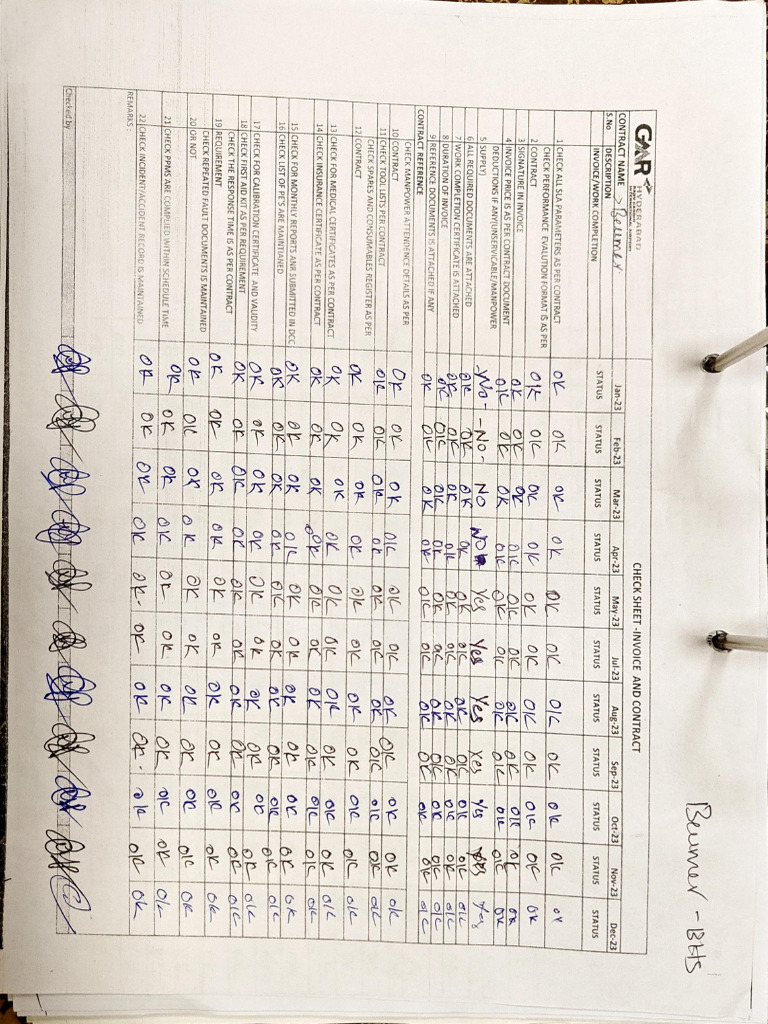 Beumer - BHS
GMR
HYDERABAD
CHECK SHEET -INVOICE AND CONTRACT
CONTRACT NAME > Beumer.
Jan-23 Feb-23 Mar-23 Apr-23 May-23 Jul-23 Aug-23 Sep-23 Oct-23 Nov-23 Dec-23
S.No DESCRIPTION
INVOICE/WORK COMPLETION STATUS STATUS STATUS STATUS STATUS STATUS STATUS STATUS STATUS STATUS STATUS
1 CHECK ALL SLA PARAMETERS AS PER CONTRACT OK OK OK OK OK OK OK OK OK OK OK
CHECK PERFORMANCE EVALUTION FORMAT IS AS PER
2 CONTRACT OK OK OK OK OK OK OK OK OK OK OK
3 SIGNATURE IN INVOICE OK OK OK OK OK OK OK OK OK OK OK
4 INVOICE PRICE IS AS PER CONTRACT DOCUMENT OK OK OK OK OK OK OK OK OK OK OK
DEDUCTIONS IF ANY(UNSERVICABLE/MANPOWER
5 SUPPLY) -No- -No- No No Yes Yes Yes Yes Yes Yes Yes
6 ALL REQUIRED DOCUMENTS ARE ATTACHED OK OK OK OK OK OK OK OK OK OK OK
7 WORK COMPLETION CERTIFICATE IS ATTACHED OK OK OK OK OK OK OK OK OK OK OK
8 DURATION OF INVOICE OK OK OK OK OK OK OK OK OK OK OK
9 REFERENCE DOCUMENTS IS ATTACHED IF ANY OK OK OK OK OK OK OK OK OK OK OK
CONTRACT REFERENCE
CHECK MANPOWER ATTENDENCE DETAILS AS PER
10 CONTRACT OK OK OK OK OK OK OK OK OK OK OK
11 CHECK TOOL LISTS PER CONTRACT OK OK OK OK OK OK OK OK OK OK OK
CHECK SPARES AND CONSUMABLES REGISTER AS PER
12 CONTRACT OK OK OK OK OK OK OK OK OK OK OK
13 CHECK FOR MEDICAL CERTIFICATES AS PER CONTRACT OK OK OK OK OK OK OK OK OK OK OK
14 CHECK INSURANCE CERTIFICATE AS PER CONTRACT OK OK OK OK OK OK OK OK OK OK OK
15 CHECK FOR MONTHLY REPORTS ANR SUBMITTED IN DCC OK OK OK OK OK OK OK OK OK OK OK
16 CHECK LIST OF PE'S ARE MAINTIANED OK OK OK OK OK OK OK OK OK OK OK
17 CHECK FOR CALIBRATION CERTIFICATE AND VALIDITY OK OK OK OK OK OK OK OK OK OK OK
18 CHECK FIRST AID KIT AS PER REQUIREMENT OK OK OK OK OK OK OK OK OK OK OK
CHECK THE RESPONSE TIME IS AS PER CONTRACT
19 REQUIREMENT OK OK OK OK OK OK OK OK OK OK OK
CHECK REPEATED FAULT DOCUMENTS IS MAINTAINED
20 OR NOT OK OK OK OK OK OK OK OK OK OK OK
21 CHECK PPMS ARE COMPLIED WITHIN SCHEDULE TIME OK OK OK OK OK OK OK OK OK OK OK
22 CHECK INCIDENT/ACCIDENT RECORD IS MAINTAINED OK OK OK OK OK. OK OK OK. OK OK OK
REMARKS :
Checked by